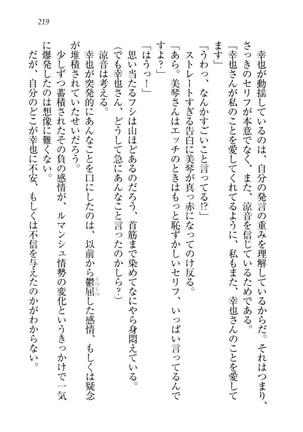 219
幸也が動揺しているのは、自分の発言の重みを理解しているからだ。それはつまり、
さっきのセリフが本意でなく、また、涼音を信じているためでもある。
「幸也さんが私のことを愛してくれてるように、私もまた、幸也さんのことを愛して
ます」
「うわっ、なんかすごいこと言ってる!?」
ストレートすぎる告白に美琴が真っ赤になってのけ反る。
「あら。美琴さんはエッチのときはもっと恥ずかしいセリフ、いっぱい言ってるんで
すよ？」
「はうっ！」
思い当たるフシは山ほどあるのだろう、首筋まで染めてなにやら身悶えている。
（でも幸也さん、どうして急にあんなこと言ったのかしら？）
涼音は考える。
幸也が突発的にあんなことを口にしたのは、以前から鬱屈した感情、もしくは疑念
が堆積されていたせいだろう。
少しずつ蓄積されたその負の感情が、ルマンシュ情勢の変化というきっかけで一気
に爆発したのは想像に難くない。
だが、自分のどこが幸也に不安、もしくは不信を与えたのかがわからない。